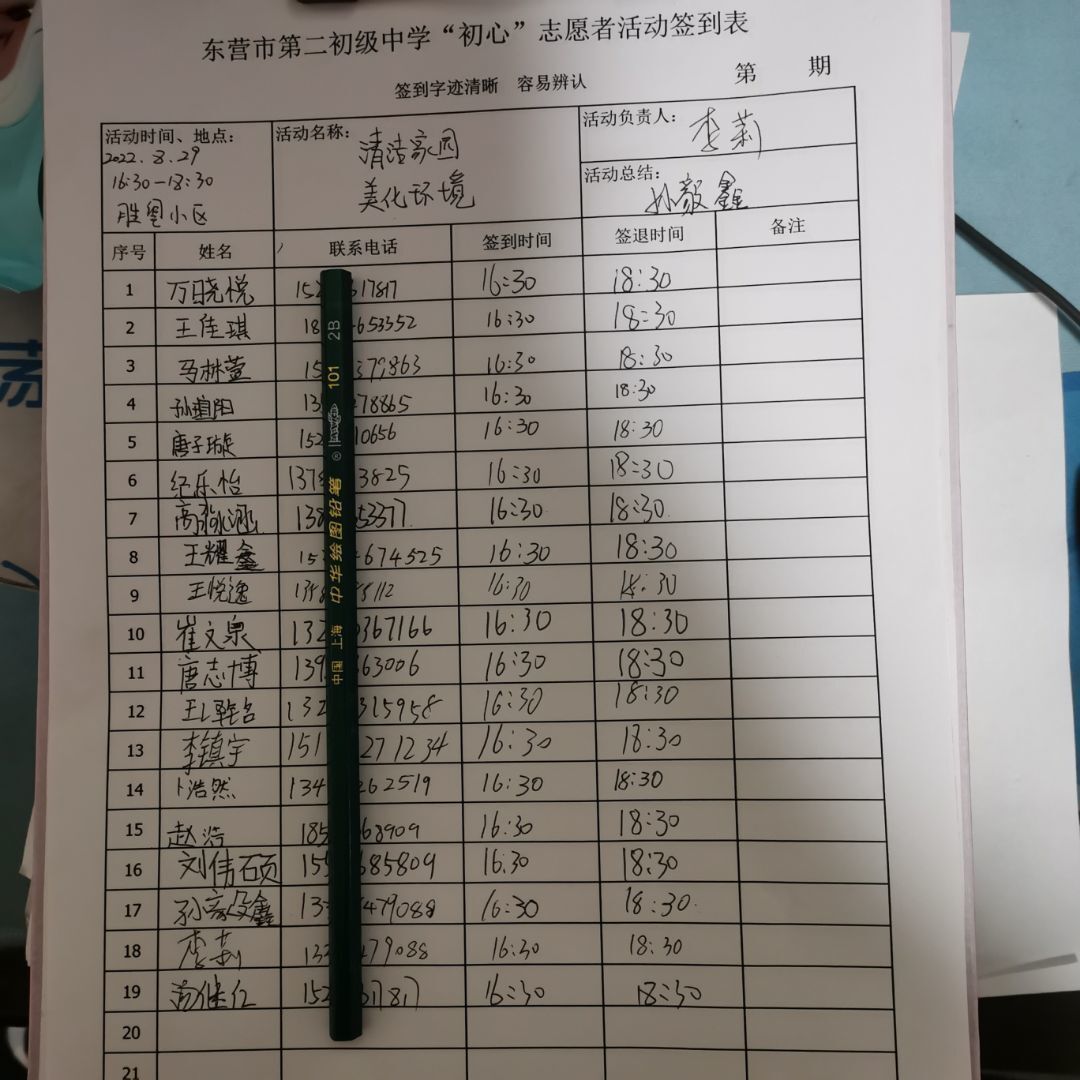 东营市第二初级中学“初心”志愿者活动签到表
签到字迹清晰 容易辨认 第 期
活动时间、地点：
2022.8.29
16:30-18:30
胜利小区
活动名称：
清洁家园
美化环境
活动负责人： 李莉
活动总结： 孙毅鑫
序号 姓名 联系电话 签到时间 签退时间 备注
1 万晓悦 15 17817 16:30 18:30
2 王佳琪 18 653352 16:30 18:30
3 马林萱 15 379863 16:30 18:30
4 孙 阳 13 78865 16:30 18:30
5 唐子璇 152 10656 16:30 18:30
6 纪乐怡 137 3825 16:30 18:30
7 高 涵 138 53377 16:30 18:30
8 王耀鑫 15 674525 16:30 18:30
9 王悦逸 1358 5112 16:30 18:30
10 崔文泉 132 367166 16:30 18:30
11 唐志博 139 63006 16:30 18:30
12 王 132 315958 16:30 18:30
13 李镇宇 151 271234 16:30 18:30
14 卜浩然 134 262519 16:30 18:30
15 赵浩 185 68909 16:30 18:30
16 刘伟硕 155 685809 16:30 18:30
17 孙毅鑫 133 479088 16:30 18:30
18 李莉 133 479088 16:30 18:30
19 152 17817 16:30 18:30
20
21
中国 上海 中华绘图铅笔 ® 101 2B